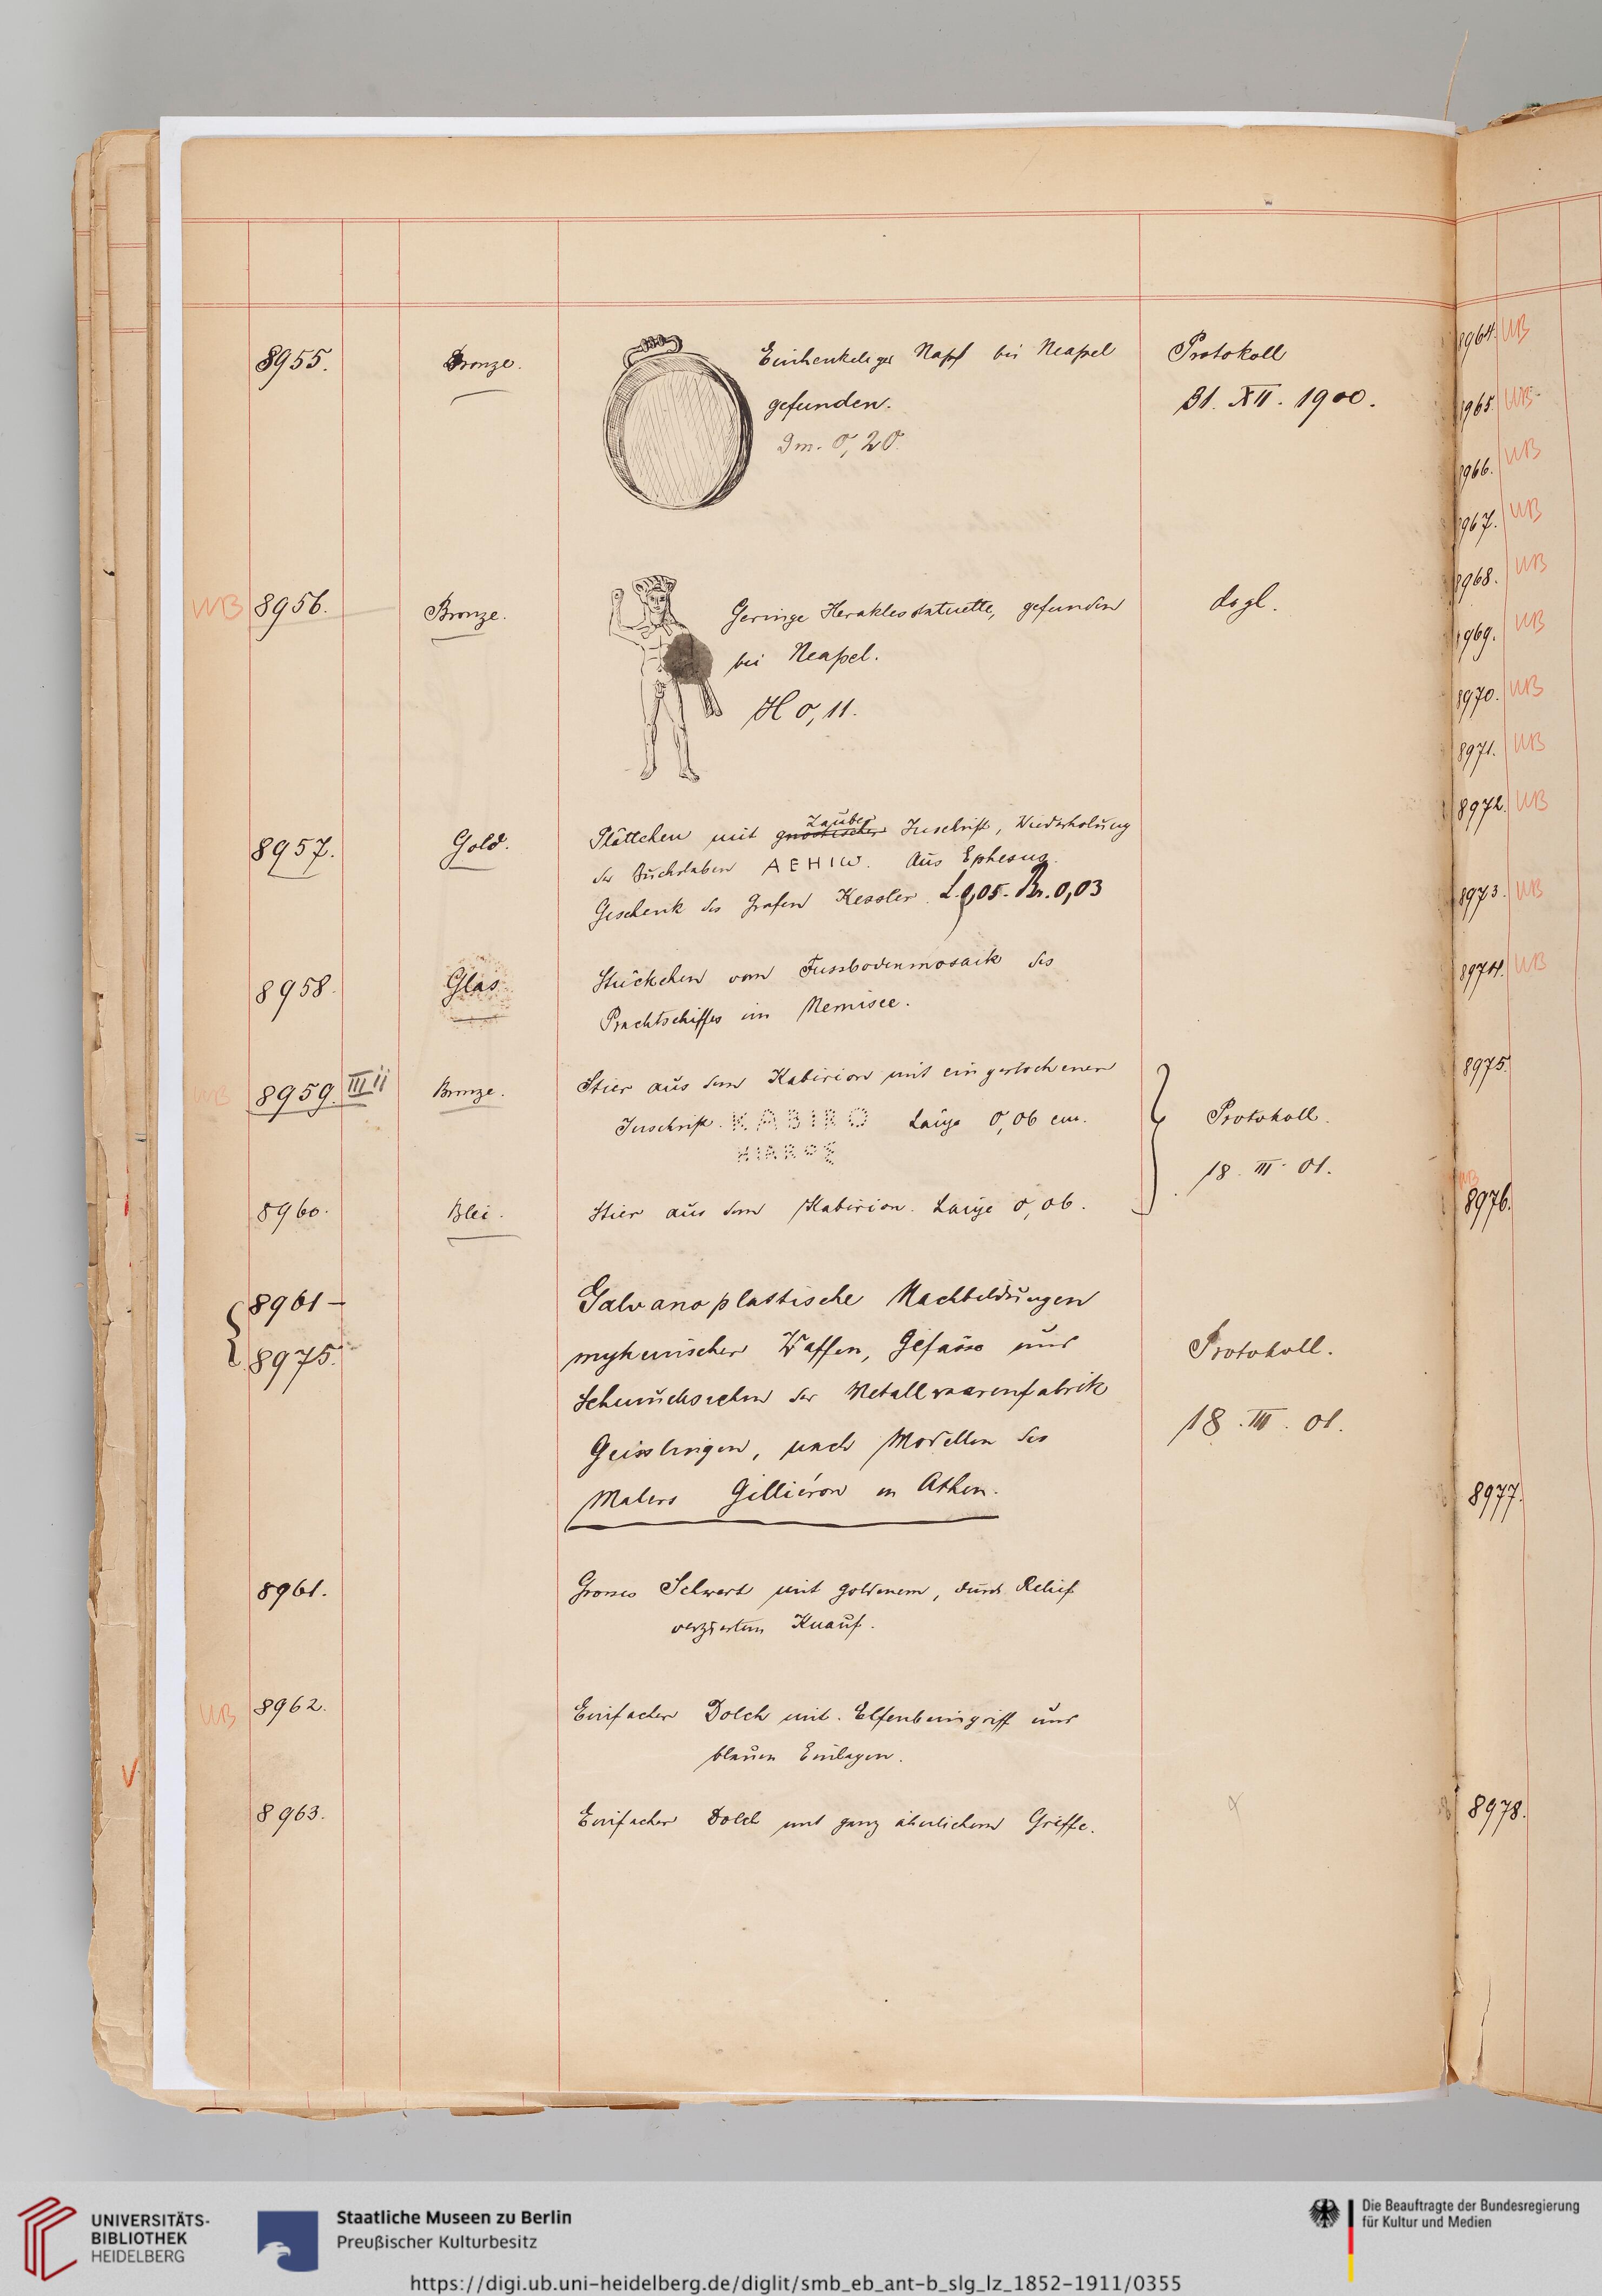 8955. Bronze. Einhenkeliger Napf bei Neapel
gefunden.
Dm. 0,20.
Protokoll
31. XII. 1900.
WB 8956. Bronze. Geringe Heraklesstatuette, gefunden
bei Neapel.
H 0,11.
dsgl.
8957. Gold. Plättchen mit gnostischer Zauber Inschrift, Wiederholung
der Buchstaben AEHIω. Aus Ephesus.
Geschenk des Grafen Kessler. L. 0,05. Br. 0,03
8958. Glas Stückchen vom Fussbodenmosaik des
Prachtschiffes im Nemisee.
WB 8959. III ii Bronze. Stier aus dem Kabirion mit eingestochener
Inschrift. KABIRO Länge 0,06 cm.
HIAROS
Protokoll.
18. III. 01.
8960. Blei. Stier aus dem Kabirion. Länge 0,06.
8961–
8975.
Galvanoplastische Nachbildungen
mykenischer Waffen, Gefässe und
Schmucksachen der Metallwaarenfabrik
Geisslingen, nach Modellen des
Malers Gilliéron in Athen.
Protokoll.
18. III. 01.
8961. Grosses Schwert mit goldenem, durch Relief
verziertem Knauf.
WB 8962. Einfacher Dolch mit Elfenbeingriff und
blauen Einlagen.
8963. Einfacher Dolch mit ganz ähnlichem Griffe.
8964. WB
8965. WB
8966. WB
8967. WB
8968. WB
8969. WB
8970. WB
8971. WB
8972. WB
8973. WB
8974. WB
8975.
WB
8976.
8977.
8978.
UNIVERSITÄTS-
BIBLIOTHEK
HEIDELBERG
Staatliche Museen zu Berlin
Preußischer Kulturbesitz
Die Beauftragte der Bundesregierung
für Kultur und Medien
https://digi.ub.uni-heidelberg.de/diglit/smb_eb_ant-b_slg_lz_1852-1911/0355